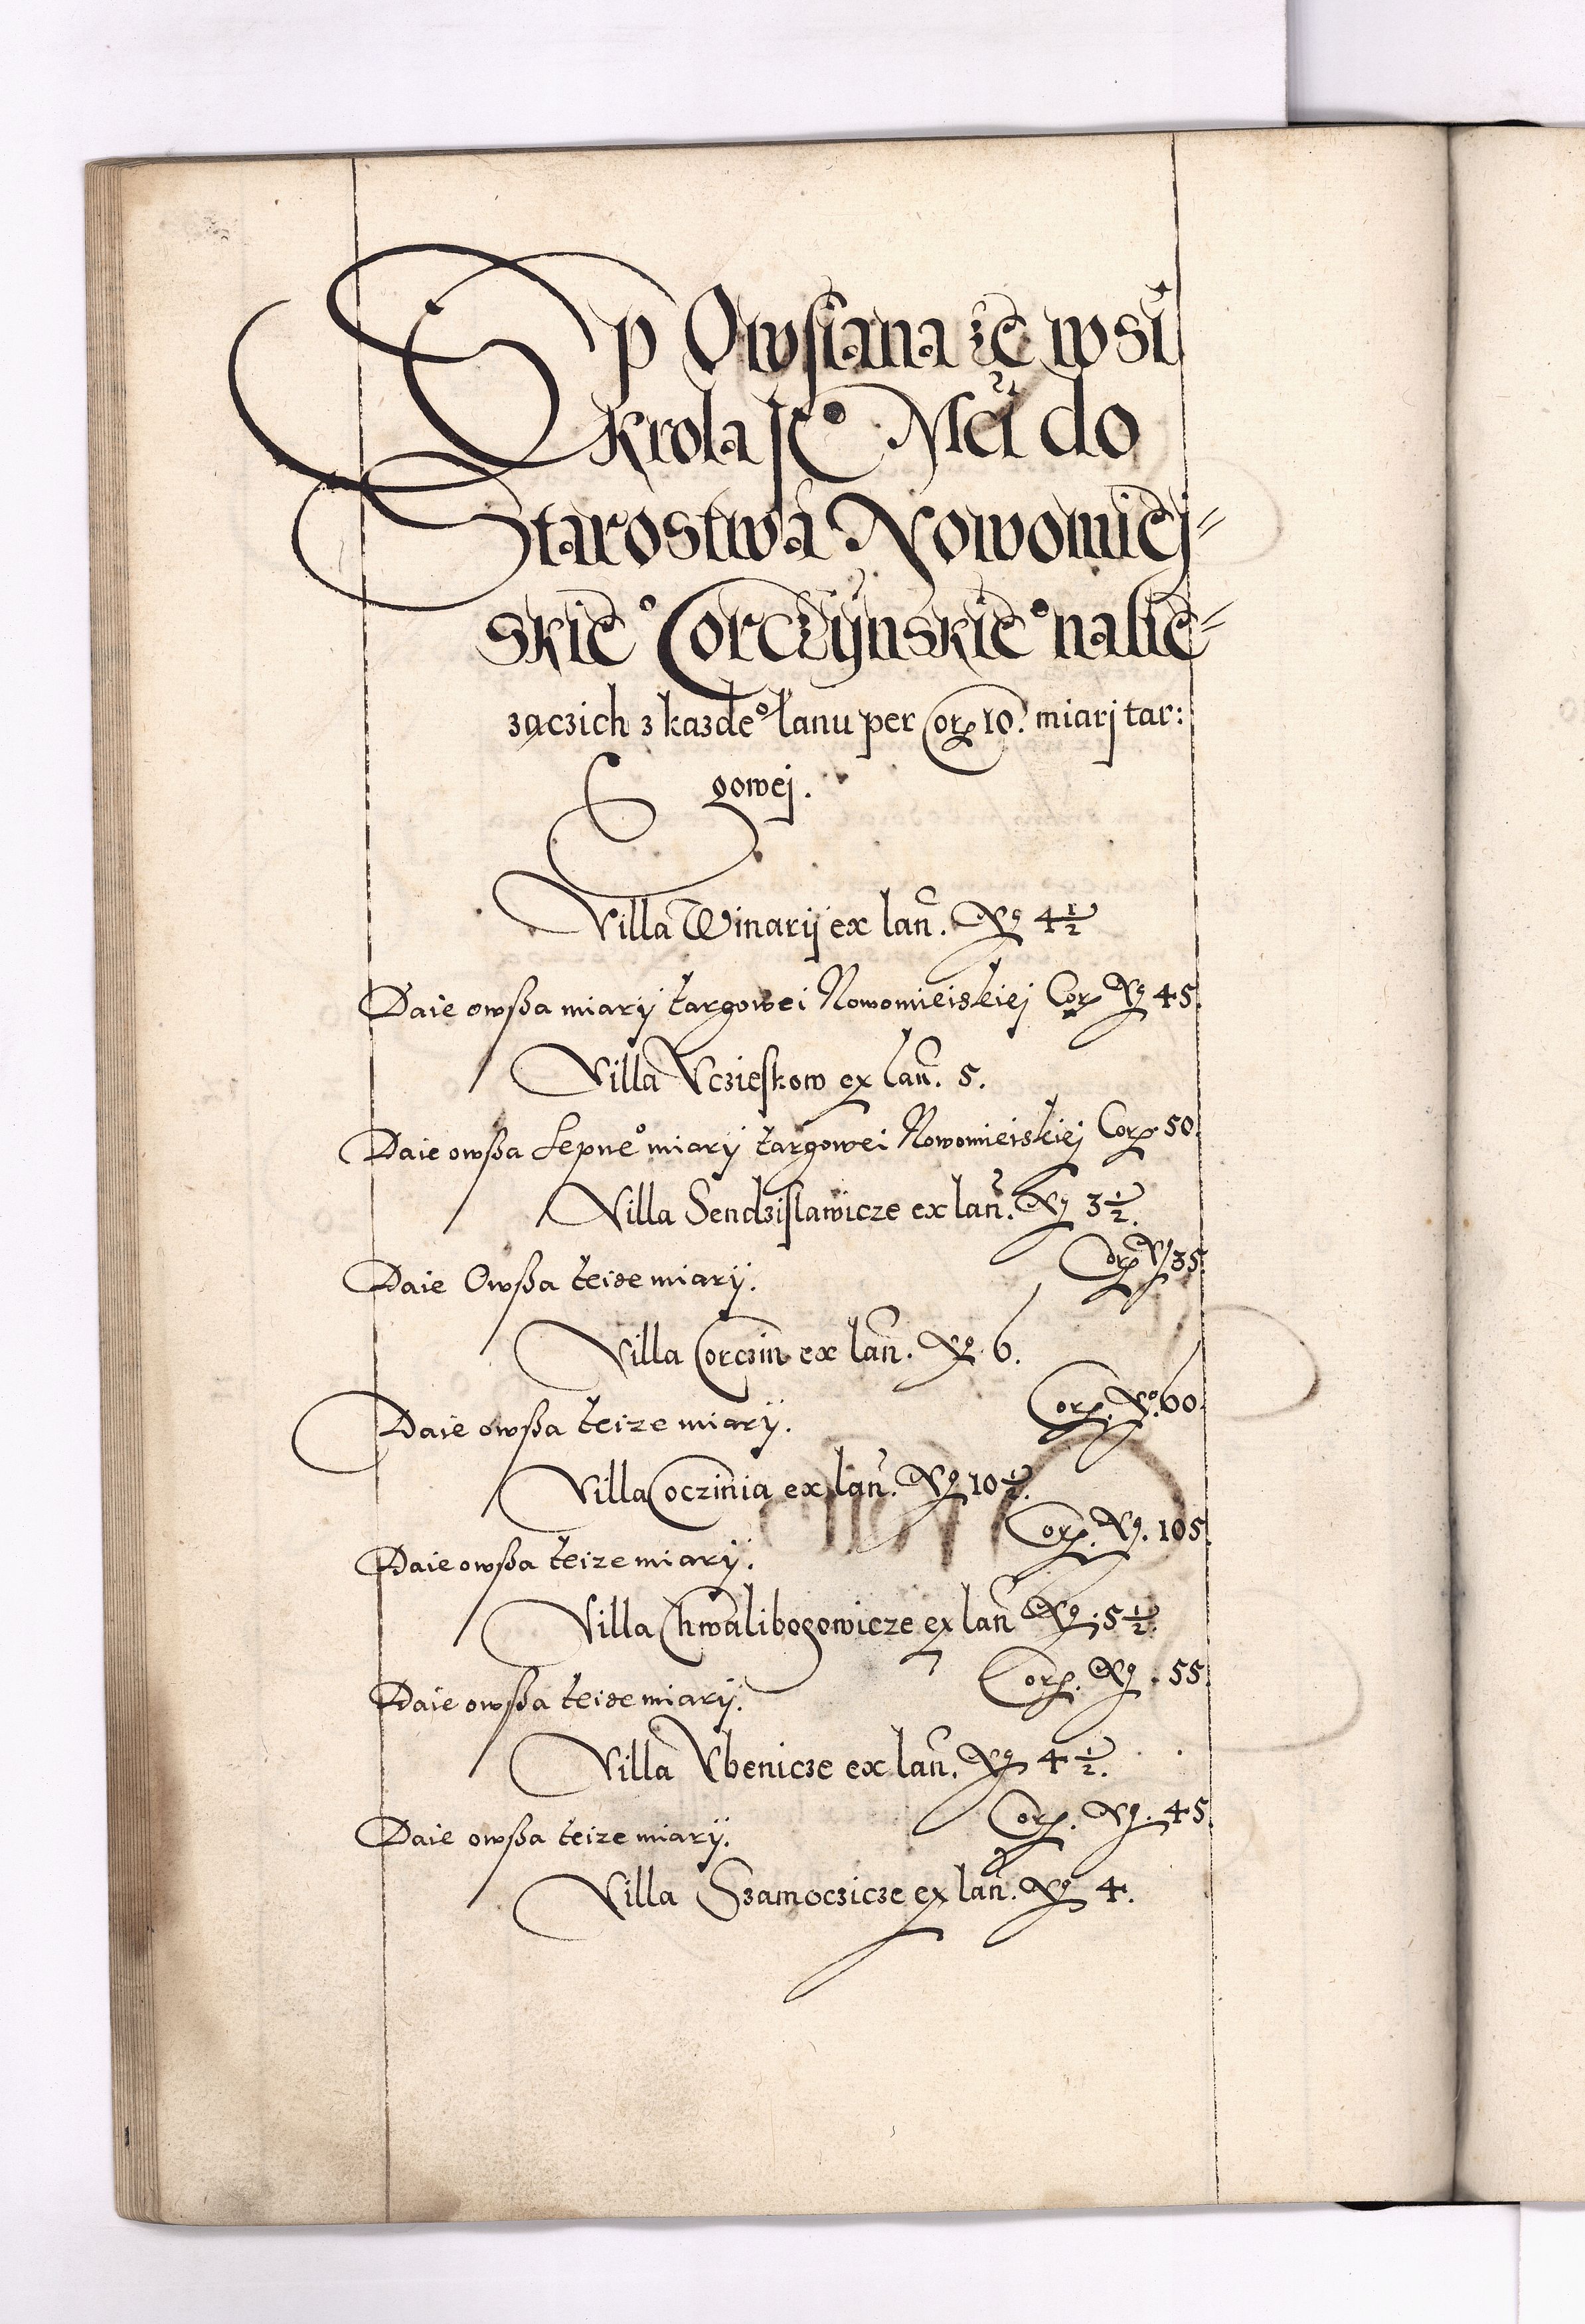 Sp Owsiana ze wsi
Krola Je° Mci do
Starostwa Nowomiej=
skie° Corczÿnskie° nalie=
zączich z kazde° łanu per Corz 10. miarj tar:
gowej.
Villa Winarij ex lan. N° 4½
Daie owßa miarij targowei Nowomieiskiej Cor N° 45.
Villa Vczieskow ex lan. 5.
Daie owßa Sepne° miarij targowei Nowomieiskiej Cor. 50.
Villa Sendzislawicze ex lan. N° 3½.
Daie Owßa teize miarij. Cor N° 35.
Villa Corczin ex lan. N° 6.
Daie owßa teize miarij. Cor. N° 60.
Villa Coczinia ex lan. N° 10½.
Daie owßa teize miarij. Cor. N° 105.
Villa Chwalibogowicze ex lan N° 5½.
Daie owßa teize miarij. Cor. N° 55.
Villa Vbenicze ex lan. N° 4½.
Daie owßa teize miarij. Cor. N° 45.
Villa Szamoczicze ex lan. N° 4.